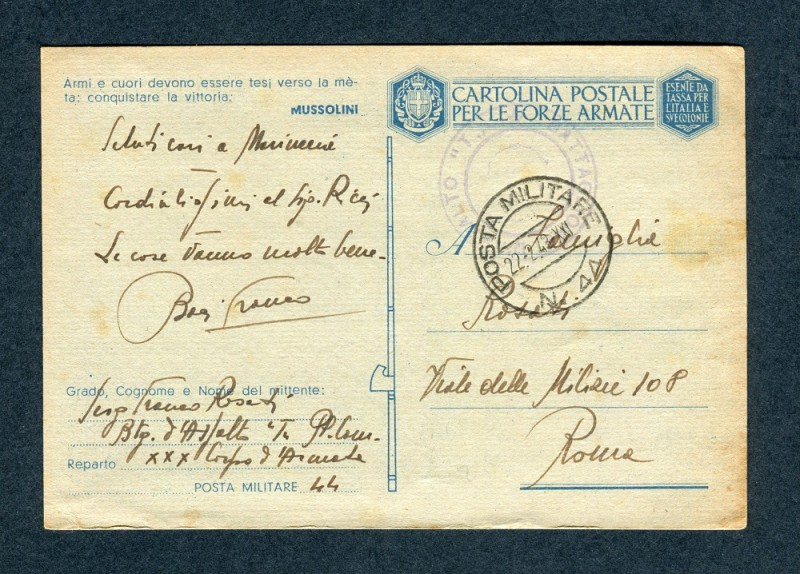 Armi e cuori devono essere tesi verso la mè-
ta: conquistare la vittoria;
MUSSOLINI
CARTOLINA POSTALE
PER LE FORZE ARMATE
ESENTE DA
TASSA PER
L'ITALIA E
SVE COLONIE
Saluti cari a
Cordialissimi al Sig. Ricci
Le cose vanno molto bene-
Baci Franco
POSTA MILITARE
22.2.43.XXI
N. 44
A Famiglia
Rosati
Viale delle Milizie 108
Roma
Grado, Cognome e Nome del mittente:
Serg Franco Rosati
Btg. d'Assalto "T" Pl. Com.
Reparto XXX Corpo d'Armata
POSTA MILITARE 44